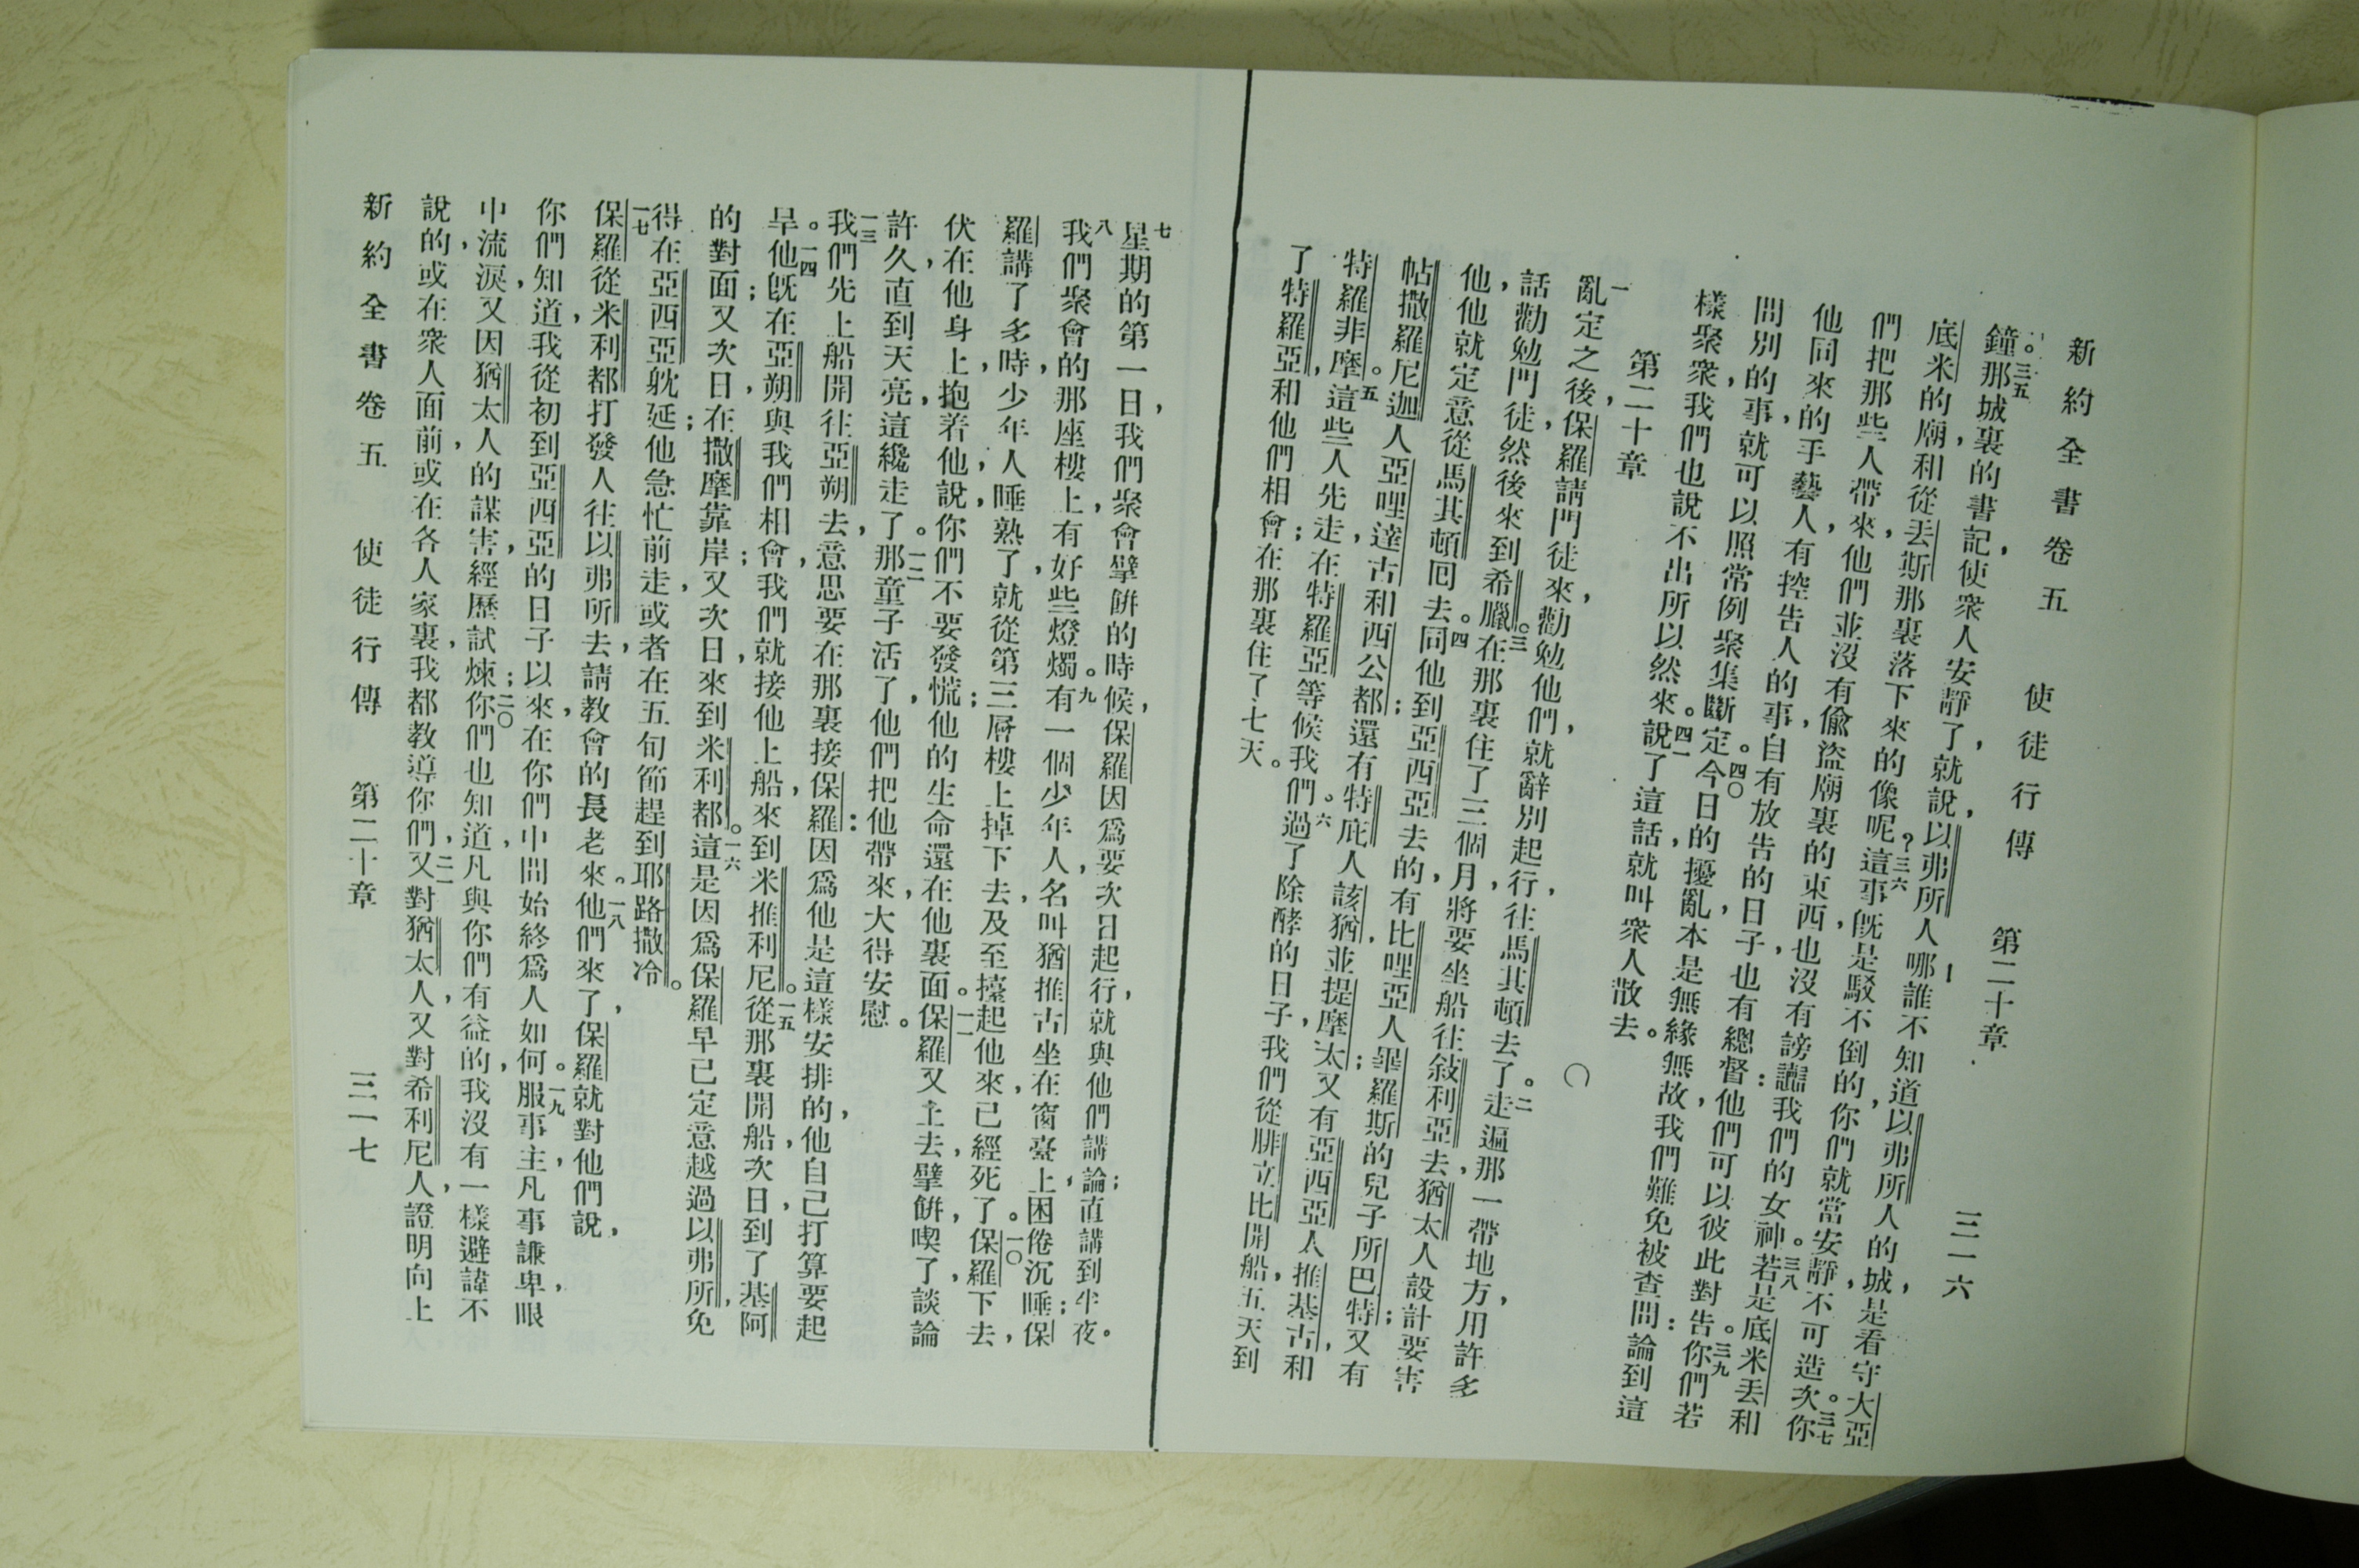 新約全書卷五 使徒行傳 第二十章 三一六
鐘。三五那城裏的書記，使衆人安靜了，就說，以弗所人哪，誰不知道以弗所人的城，是看守大亞
底米的廟，和從丟斯那裏落下來的像呢？三六這事旣是駁不倒的，你們就當安靜，不可造次。三七你
們把那些人帶來，他們並沒有偷盜廟裏的東西，也沒有謗讟我們的女神。三八若是底米丟和
他同來的手藝人，有控告人的事，自有放告的日子，也有總督：他們可以彼此對告。三九你們若
問別的事，就可以照常例聚集斷定。四〇今日的擾亂，本是無緣無故，我們難免被查問：論到這
樣聚衆，我們也說不出所以然來。四一說了這話，就叫衆人散去。
第二十章 〇
一亂定之後，保羅請門徒來，勸勉他們，就辭別起行，往馬其頓去了。二走遍那一帶地方，用許多
話勸勉門徒，然後來到希臘。三在那裏住了三個月，將要坐船往敍利亞去，猶太人設計要害
他，他就定意從馬其頓回去。四同他到亞西亞去的，有比哩亞人畢羅斯的兒子所巴特；又有
帖撒羅尼迦人亞哩達古和西公都；還有特庇人該猶，並提摩太；又有亞西亞人推基古，和
特羅非摩。五這些人先走，在特羅亞等候我們。六過了除酵的日子，我們從腓立比開船，五天到
了特羅亞，和他們相會；在那裏住了七天。
七星期的第一日，我們聚會擘餅的時候，保羅因爲要次日起行，就與他們講論；直講到半夜。
八我們聚會的那座樓上，有好些燈燭。九有一個少年人，名叫猶推古，坐在窗臺上，困倦沉睡；保
羅講了多時，少年人睡熟了，就從第三層樓上掉下去，及至擡起他來，已經死了。一〇保羅下去，
伏在他身上，抱着他，說，你們不要發慌；他的生命還在他裏面。一一保羅又上去，擘餅，喫了，談論
許久，直到天亮，這纔走了。一二那童子活了，他們把他帶來，大得安慰。
一三我們先上船，開往亞朔去，意思要在那裏接保羅：因爲他是這樣安排的，他自己打算要起
旱。一四他旣在亞朔與我們相會，我們就接他上船，來到米推利尼。一五從那裏開船，次日到了基阿
的對面；又次日，在撒摩靠岸；又次日，來到米利都。一六這是因爲保羅早已定意越過以弗所，免
得在亞西亞躭延；他急忙前走，或者在五旬節趕到耶路撒冷。
一七保羅從米利都打發人往以弗所去，請教會的長老來。一八他們來了，保羅就對他們說，
你們知道，我從初到亞西亞的日子以來，在你們中間始終爲人如何。一九服事主，凡事謙卑，眼
中流淚，又因猶太人的謀害，經歷試煉；二〇你們也知道，凡與你們有益的，我沒有一樣避諱不
說的，或在衆人面前，或在各人家裏，我都教導你們，二一又對猶太人，又對希利尼人，證明向上
新約全書卷五 使徒行傳 第二十章 三一七